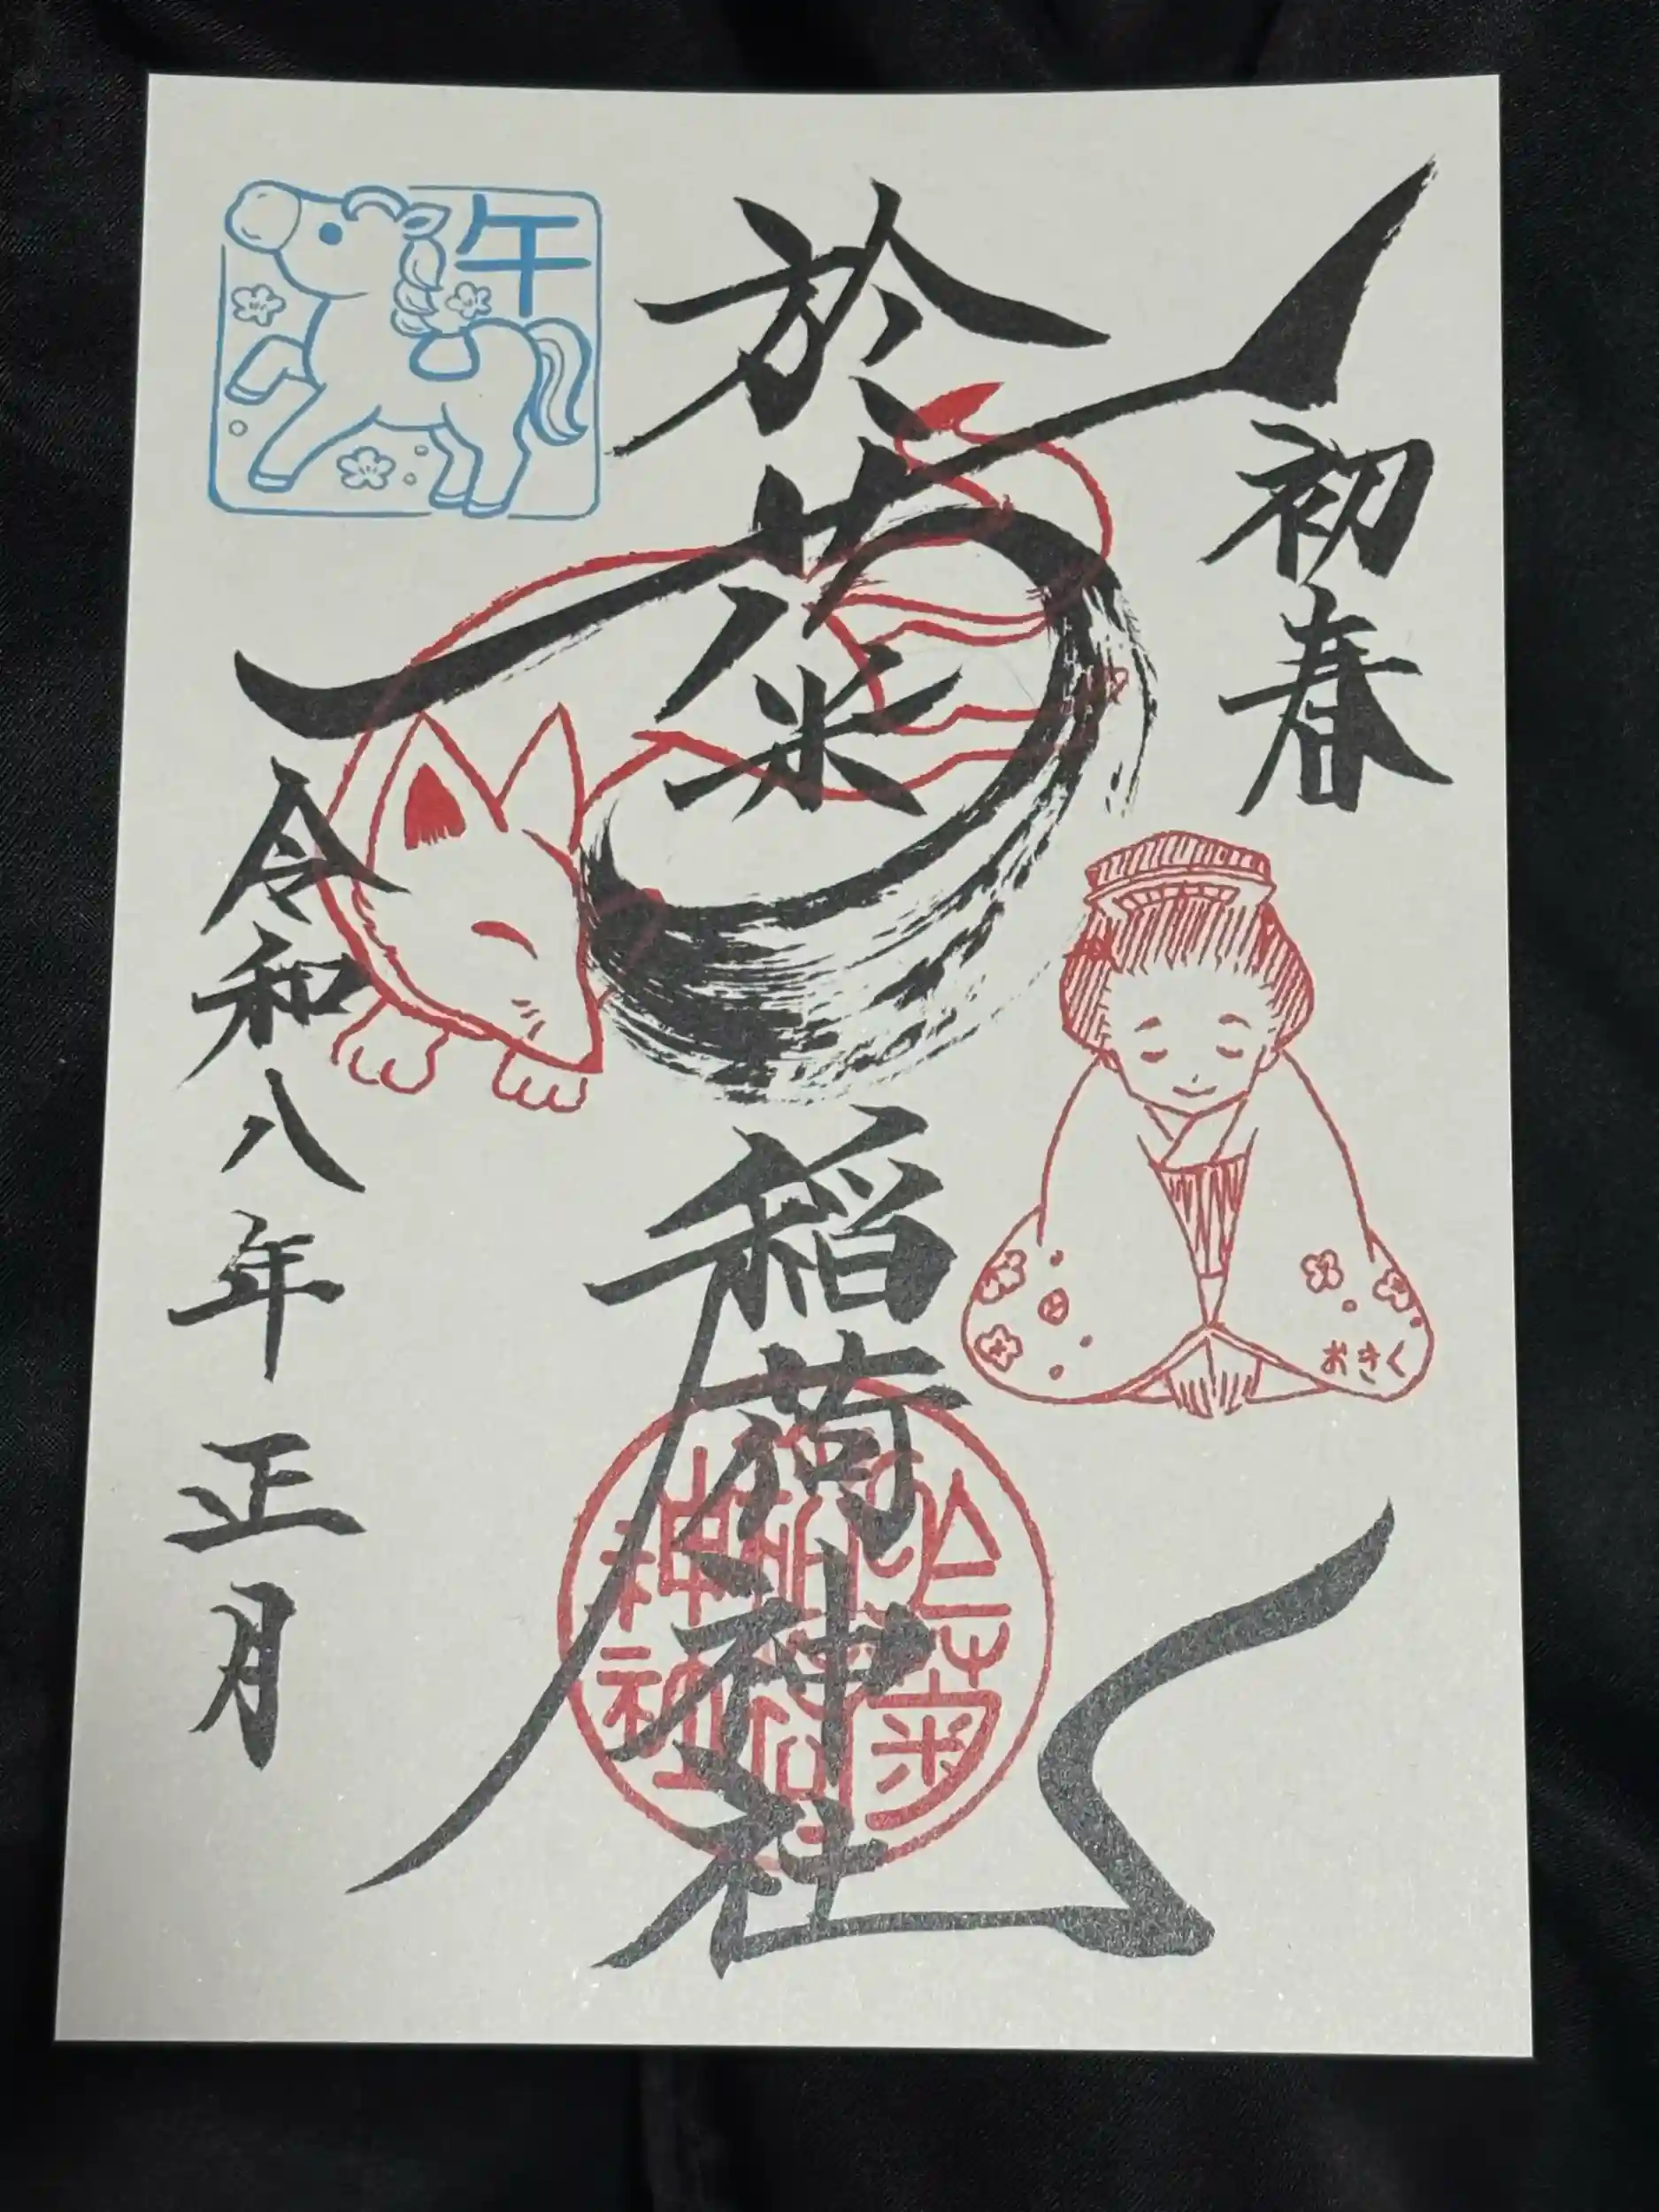 初春
於菊稲荷神社
令和八年正月
午
おきく
於菊稲荷神社